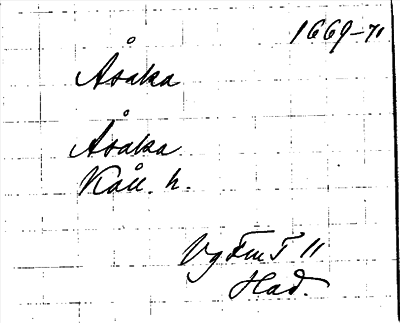 1669-71
Åsaka
Åsaka
Kåll. h.
VgFmT II
Had.